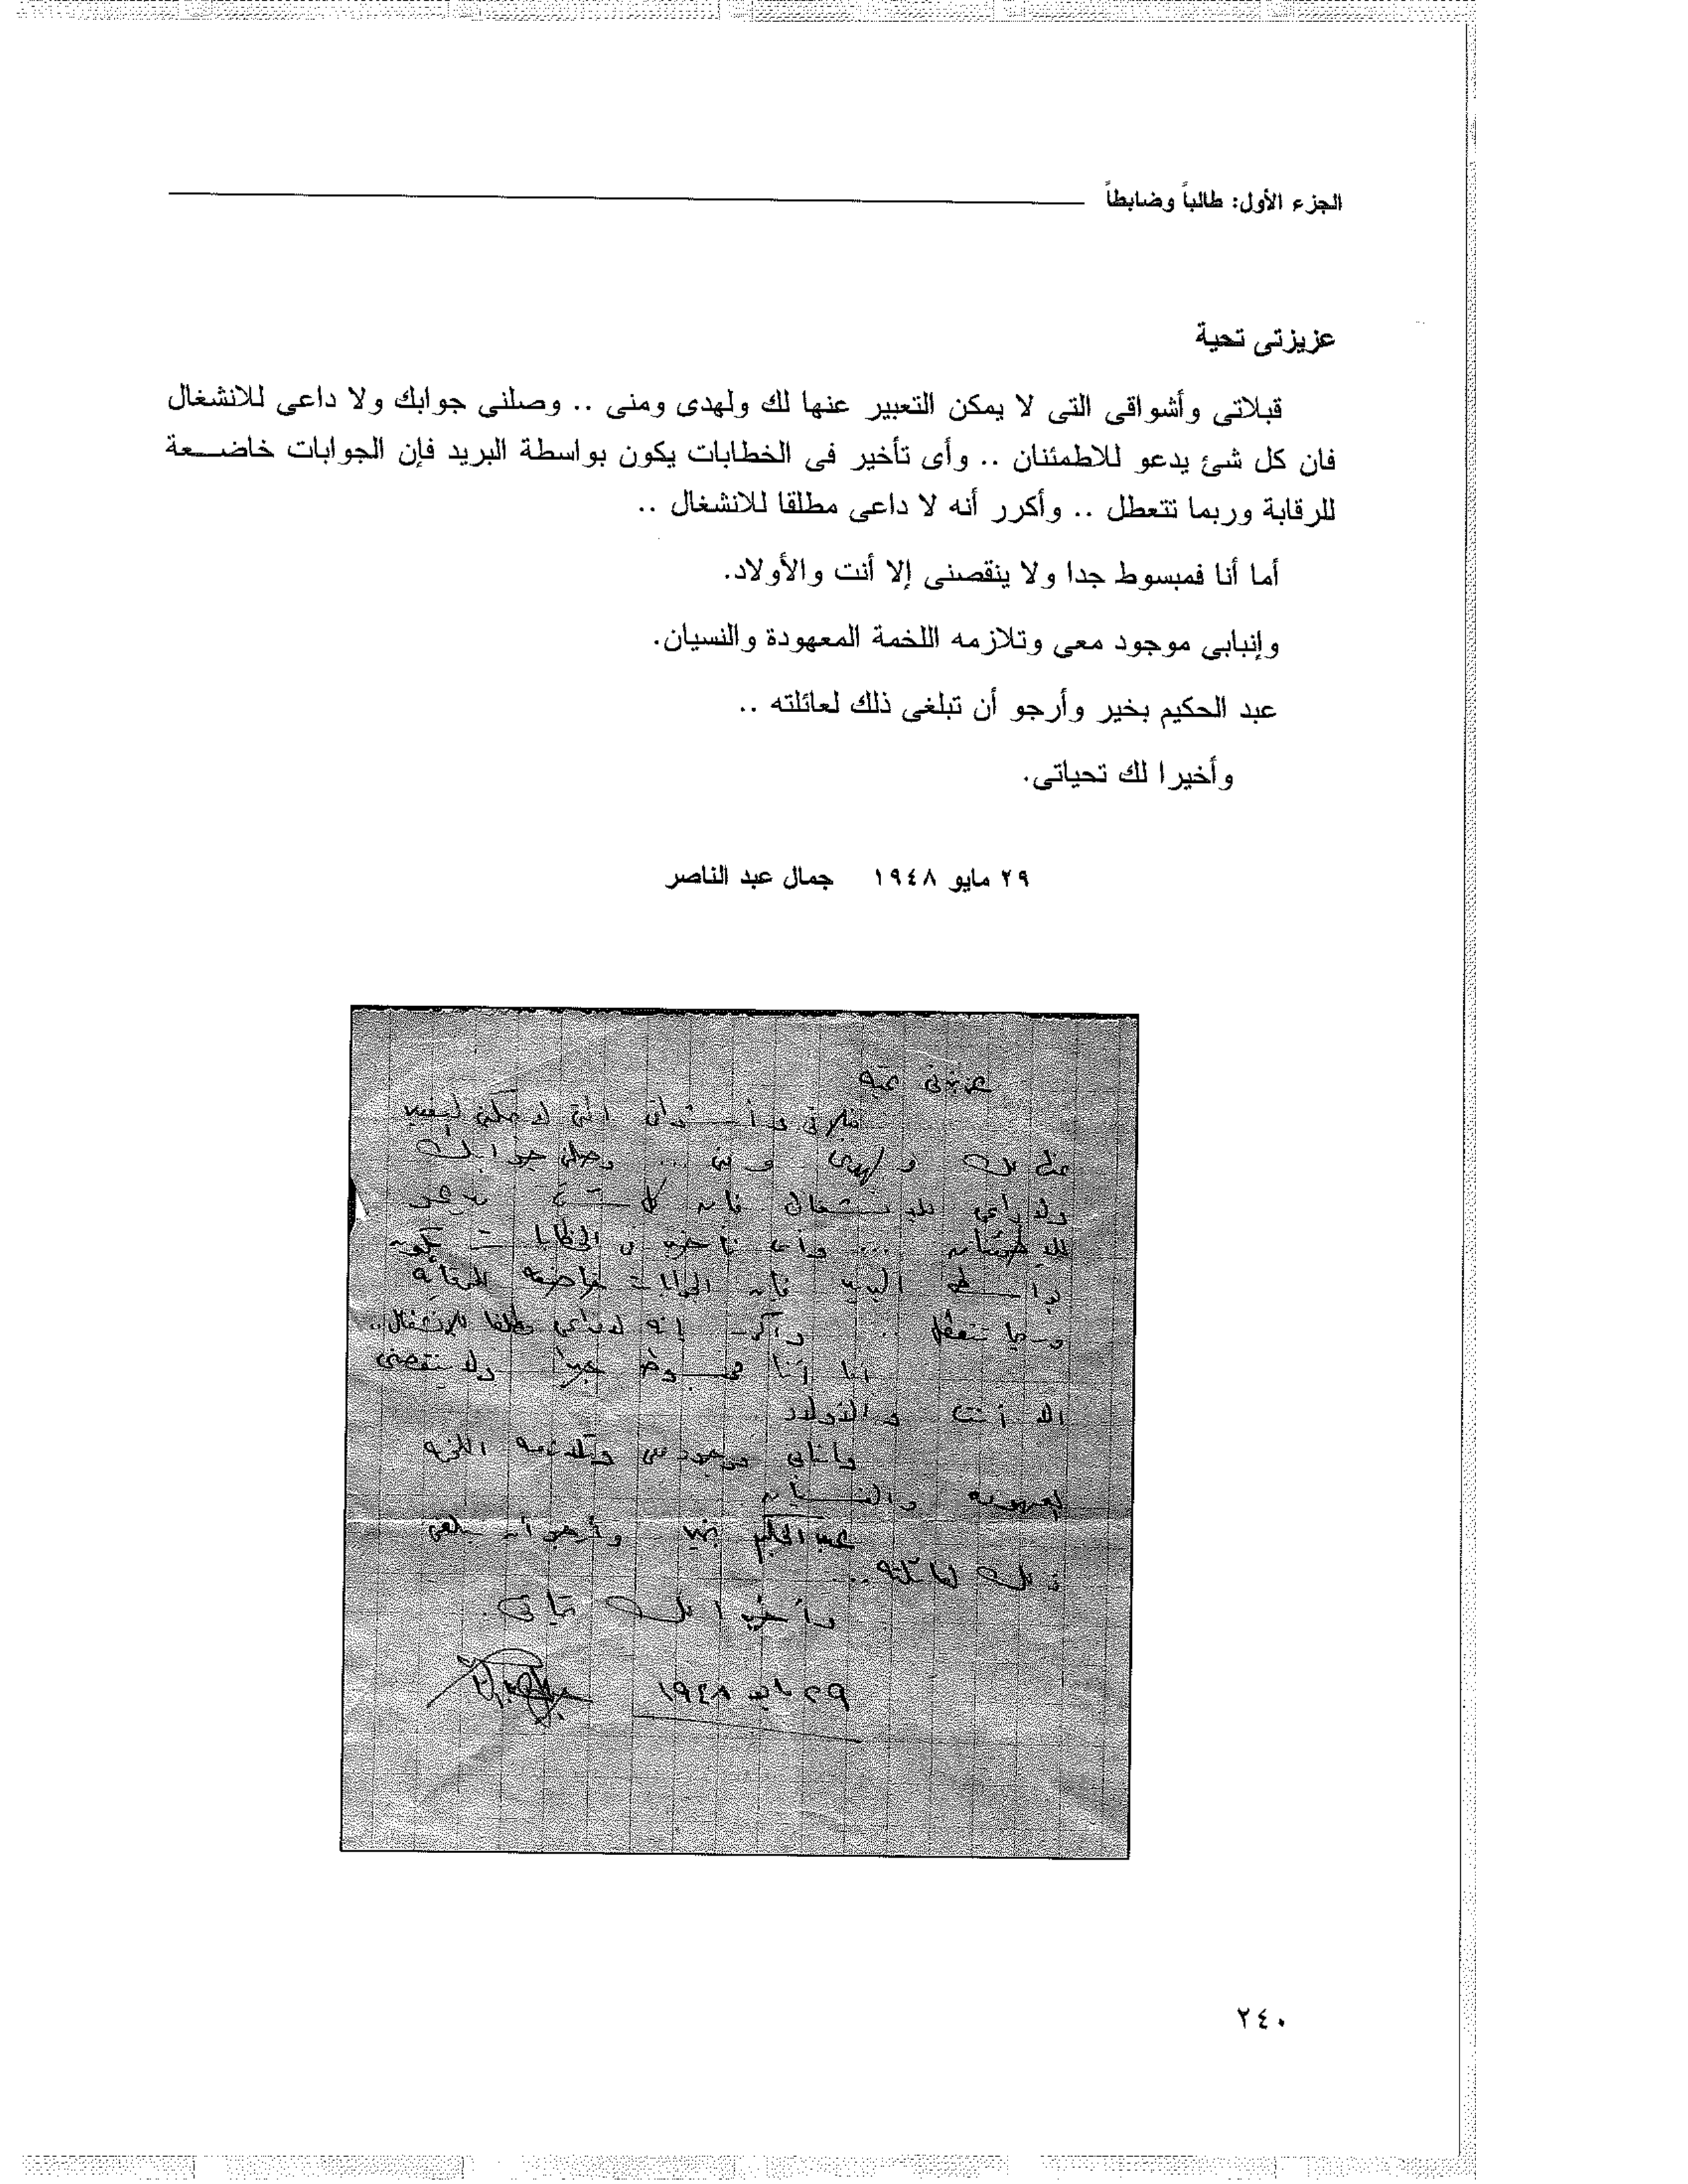 الجزء الأول: طالباً وضابطاً
عزيزتى تحية
قبلاتى وأشواقى التى لا يمكن التعبير عنها لك ولهدى ومنى .. وصلنى جوابك ولا داعى للانشغال
فان كل شئ يدعو للاطمئنان .. وأى تأخير فى الخطابات يكون بواسطة البريد فإن الجوابات خاضـــعة
للرقابة وربما تتعطل .. وأكرر أنه لا داعى مطلقا للانشغال ..
أما أنا فمبسوط جدا ولا ينقصنى إلا أنت والأولاد.
وإنبابى موجود معى وتلازمه اللخمة المعهودة والنسيان.
عبد الحكيم بخير وأرجو أن تبلغى ذلك لعائلته ..
وأخيرا لك تحياتى.
٢٩ مايو ١٩٤٨ جمال عبد الناصر
عزيزتى تحيه
قبلاتى وأشواقى التى لا يمكن التعبير
عنها لك ولهدى ومنى ... وصلنى جوابك
ولا داعى للانشغال فان كل شئ يدعو
للاطمئنان ... وأى تأخير فى الخطابات يكون
بواسطه البريد فان الجوابات خاضعه للرقابه
وربما تتعطل .. وأكرر إنه لا داعى مطلقا للانشغال ..
اما أنا فمبسوط جداً ولا ينقصنى
الا أنت والأولاد
وانبابى موجود معى وتلازمه اللخمه
المعهوده والنسيان
عبد الحكيم بخير وأرجو أن تبلغى
ذلك لعائلته ..
وأخيرا لك تحياتى .
٢٩ مايو ١٩٤٨
٢٤٠